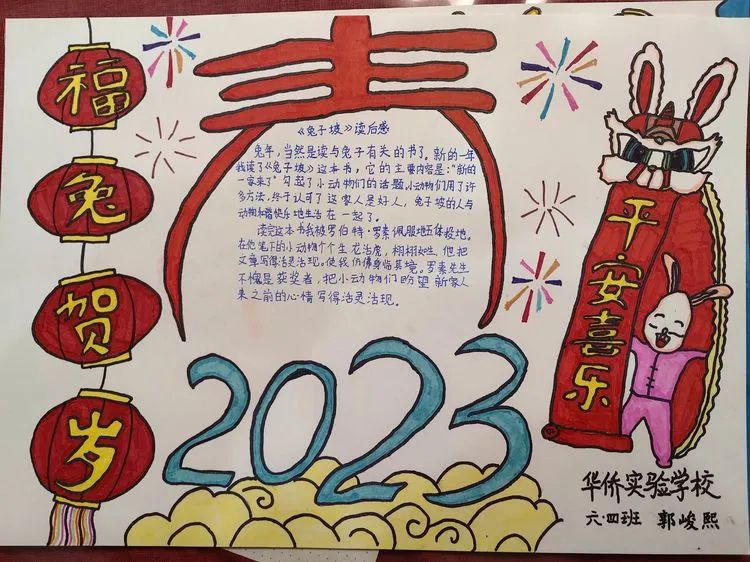 福
兔
贺
岁
春
《兔子坡》读后感
兔年,当然是读与兔子有关的书了。新的一年
我读了《兔子坡》这本书,它的主要内容是:“新的
一家来了”勾起了小动物们的话题,小动物们用了许
多方法,终于认可了这家人是好人,兔子坡的人与
动物和谐快乐地生活在一起了。
读完这本书我被罗伯特·罗素佩服地五体投地。
在他笔下的小动物个个生龙活虎,栩栩如生,他把
文章写得活灵活现。使我仿佛身临其境。罗素先生
不愧是获奖者,把小动物们盼望新家人
来之前的心情写得活灵活现。
2023
平安喜乐
华侨实验学校
六·四班 郭峻熙